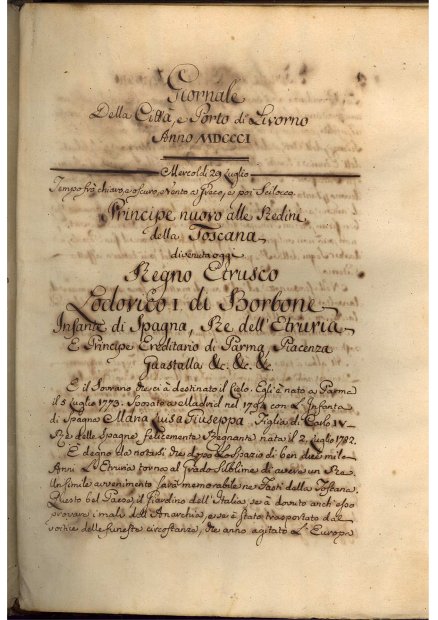 Giornale
Della Città, e Porto di Livorno
Anno MDCCCI
Mercoldì 29 Luglio
Tempo frà chiaro, e oscuro, Vento a Greco, e poi Scilocco
Principe nuovo alle Redini
della Toscana
divenuta oggi
Regno Etrusco
Lodovico I. di Borbone
Infante di Spagna, Re dell'Etruria
E Principe Ereditario di Parma, Piacenza
Guastalla &c. &c. &c.
E il Sovrano, che ci à destinato il Cielo. Egli è nato a Parma
il 5 Luglio 1773. Sposato a Madrid nel 1795 con L'Infanta
di Spagna Maria Luisa Giuseppa Figlia di Carlo IV
Re delle Spagne, felicemente Regnante, nata il 2. Luglio 1782.
È degno da notarsi, che dopo lo spazio di ben due mila
Anni L'Etruria torna al grado Sublime di avere un Re.
Un simile avvenimento sarà memorabile ne' Fasti della Toscana.
Questo bel Paese, il Giardino dell'Italia, se à dovuto anch'esso
provare i mali dell'Anarchia, e se è stato trasportato dal
vortice delle funeste circostanze, che anno agitato L'Europa